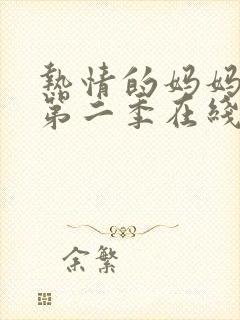 熱情的妈妈
第二季在綫
余繁